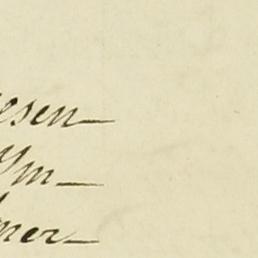 esen—
ym—
mer—